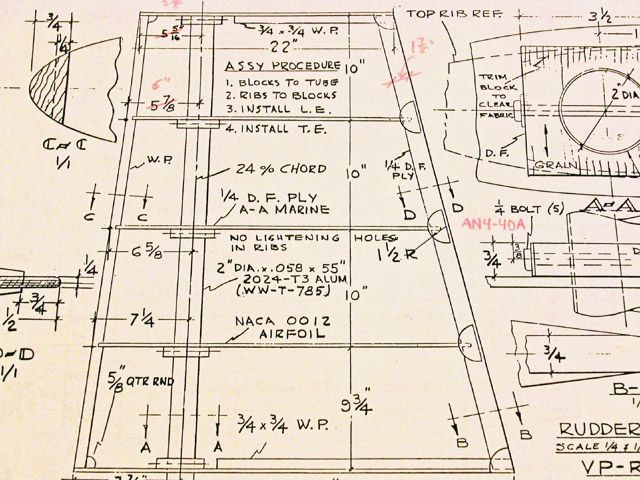 3/4
1/4
C-C
1/1
5 5/16
3/4 x 3/4 W.P.
22"
ASSY PROCEDURE
1. BLOCKS TO TUBE
2. RIBS TO BLOCKS
3. INSTALL L.E.
4. INSTALL T.E.
10"
6"
5 7/8
W.P.
24% CHORD
10"
1/4 D.F. PLY
1/4 D.F. PLY
A-A MARINE
C
C
D
D
NO LIGHTENING HOLES
IN RIBS
1 1/2 R
6 5/8
2" DIA. x .058 x 55"
2024-T3 ALUM
(WW-T-785)
10"
7 1/4
NACA 0012
AIRFOIL
5/8 QTR RND
9 3/4"
3/4 x 3/4 W.P.
A
A
B
B
1/4
3/4
1/2
D-D
1/1
TOP RIB REF.
3 1/2
TRIM
BLOCK TO
CLEAR
FABRIC
2" DIA
D.F.
GRAIN
A-A
1/4 BOLT (5)
AN4-40A
3/4
3/8
3/4
B-
RUDDER
SCALE 1/4 & 1/
VP-R